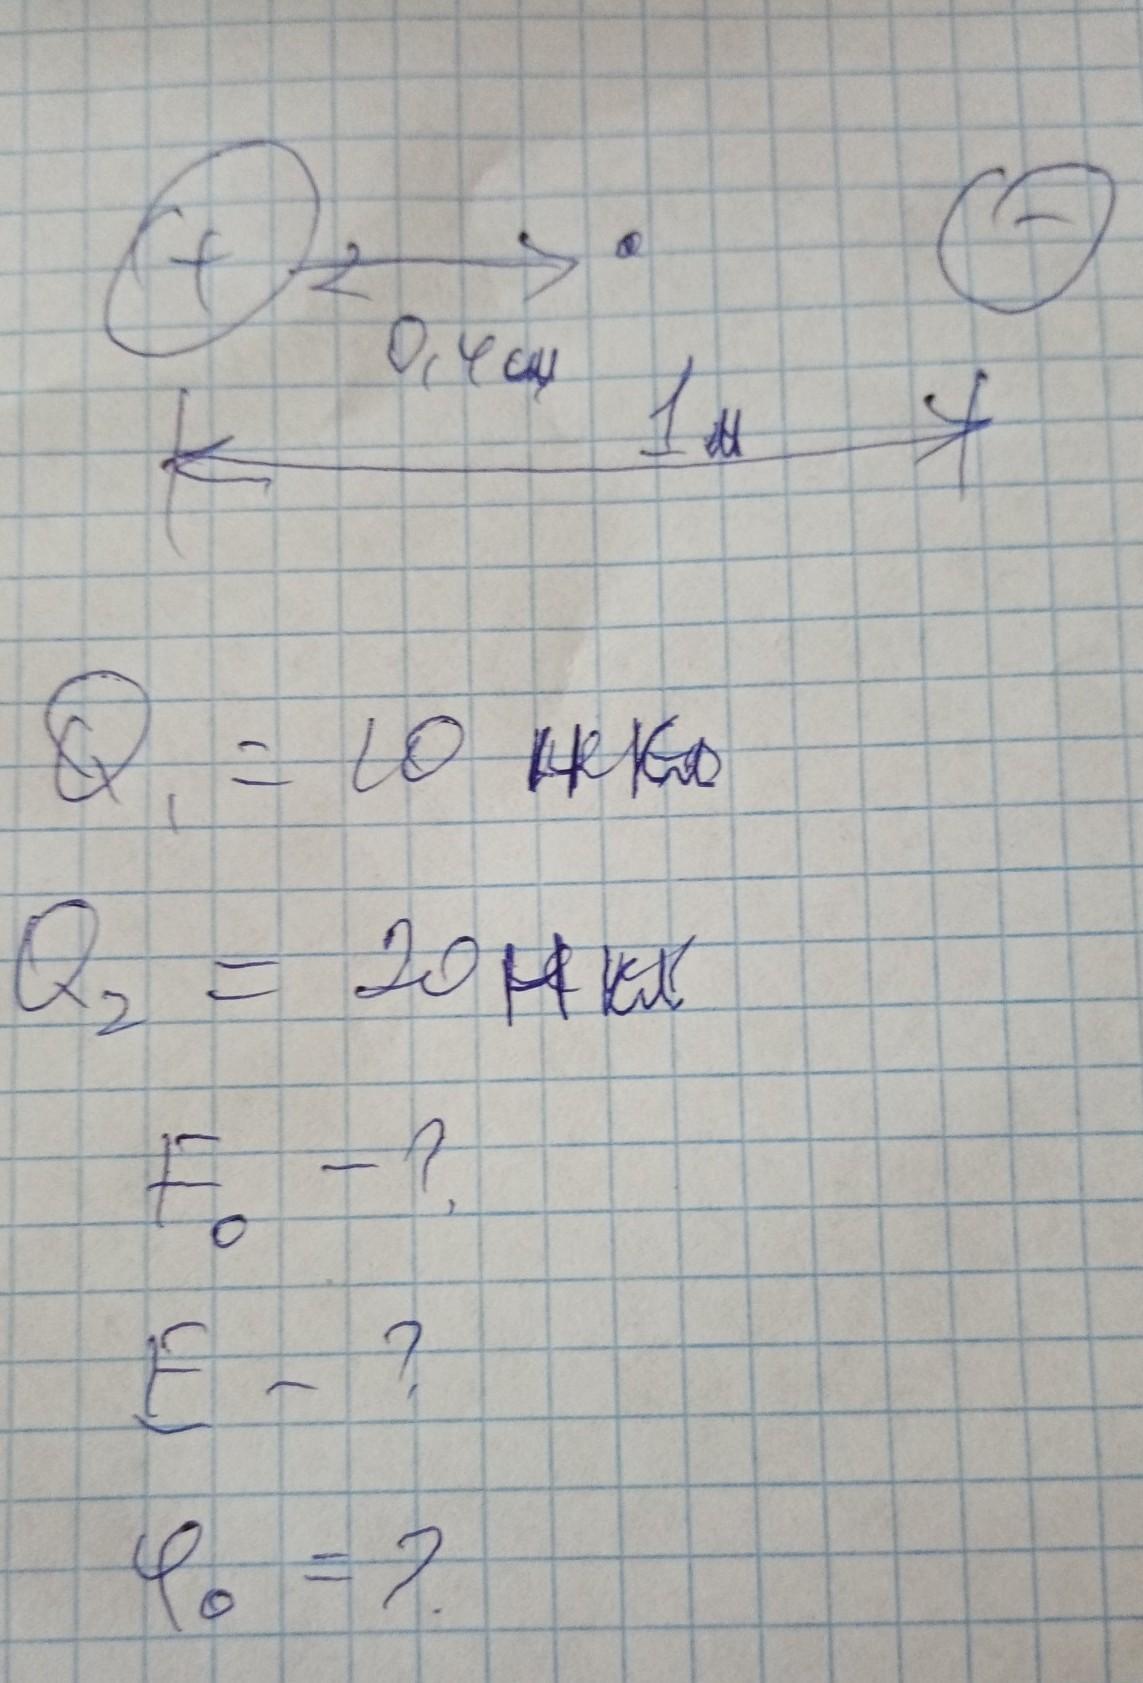 +
-
0,4см
1м
Q₁ = 10 мкКл
Q₂ = 20 мкКл
F₀ - ?
E - ?
φ₀ = ?